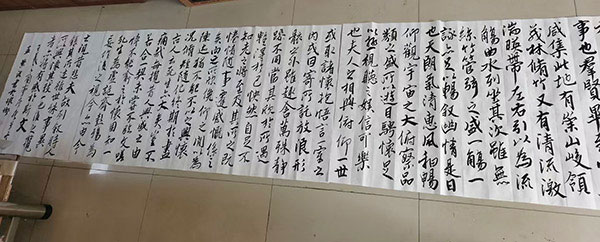 事也羣賢畢
咸集此地有崇山峻領
茂林脩竹又有清流激
湍暎帶左右引以為流
觴曲水列坐其次雖無
絲竹管弦之盛一觴一
詠亦足以暢叙幽情是日
也天朗氣清惠風和暢
仰觀宇宙之大俯察品
類之盛所以遊目騁懷足
以極視聽之娛信可樂
也夫人之相與俯仰一世
或取諸懷抱悟言一室之
內或因寄所託放浪形
骸之外雖趣舍萬殊靜
躁不同當其欣於所遇
暫得於己快然自足不
知老之將至及其所之既
惓情隨事遷感慨係之
矣向之所欣俛仰之間以為
陳迹猶不能不以之興懷
況脩短隨化終期於盡
古人云死生亦大矣豈不
痛哉每攬昔人興感之由
若合一契未嘗不臨文嗟
悼不能喻之於懷固知一
死生為虛誕齊彭殤為
妄作後之視今亦由今
之視昔悲夫故列叙時人